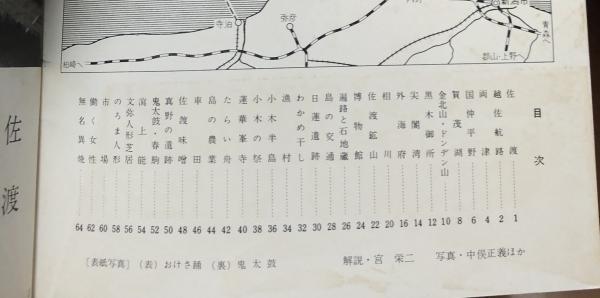 寺泊
弥彦
新潟市
青森へ
柏崎へ
郡山・上野へ
佐渡
目次
佐渡 1
越佐航路 2
両津 4
国仲平野 6
賀茂湖 8
金北山・ドンデン山 10
黒木御所 12
尖閣湾 14
外海府 16
相川 20
佐渡鉱山 22
博物館 24
遍路と石地蔵 26
島の交通 28
日蓮遺跡 30
わかめ干し 32
漁村 34
小木半島 36
小木の祭 38
蓮華峯寺 40
たらい舟 42
島の農業 44
車田 46
佐渡味噌 48
真野の遺跡 50
鬼太鼓・春駒 52
潟上能 54
文弥人形芝居 56
のろま人形 58
市場 60
働く女性 62
無名異焼 64
解説・宮栄二 写真・中俣正義ほか
〔表紙写真〕(表)おけさ踊 (裏)鬼太鼓